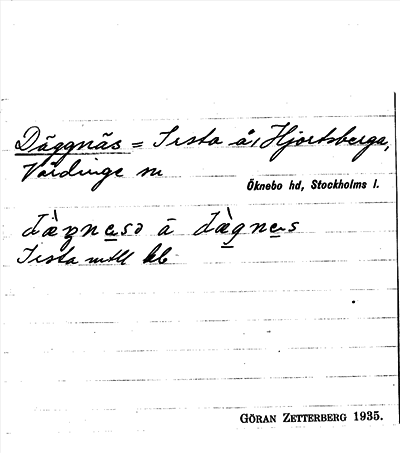 Däggnäs = Sista å, Hjortsberga,
Vårdinge sn
Öknebo hd, Stockholms l.
dæ̀gnesə ā dæ̀gnes
Sista mtll kb
GÖRAN ZETTERBERG 1935.